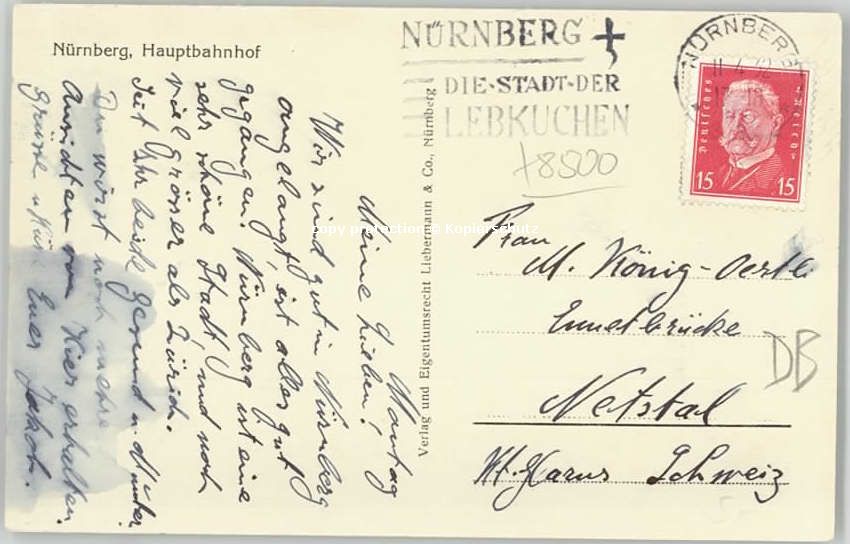 Nürnberg, Hauptbahnhof
NÜRNBERG
DIE·STADT·DER
LEBKUCHEN
NÜRNBERG
11.4.32
Deutsches Reich
15 15
+8500
Montag
Meine Lieben!
Wir sind gut in Nürnberg
angelangt, ist alles gut
gegangen. Nürnberg ist eine
sehr schöne Stadt, und noch
viel grösser als Zürich.
Seit Ihr beide gesund u. munter.
Du wirst noch mehre
Ansichten von Hier erhalten.
Grüsse u. Küsse Euer Jakob.
Verlag und Eigentumsrecht Liebermann & Co., Nürnberg
copy protection © Kopierschutz
Frau
M. König-Oertli
Ennetbrücke
Netstal
Kt. Glarus Schweiz
DB
5.-